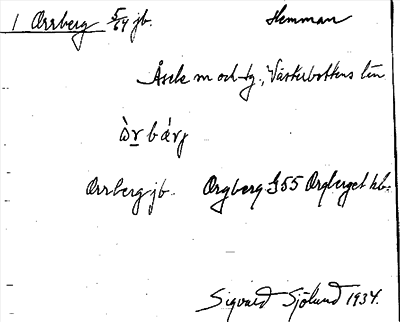 1 Orrberg 5/64 jb. Hemman
Åsele sn och tg., Västerbottens län
òr bárj
Orrberg jb. Orgberg G55 Orgberget hb.
Sigvard Sjölund 1934.